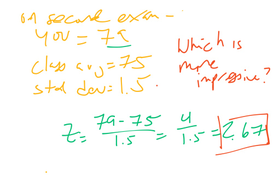 on second exam -
you = 79
class avg = 75
std dev = 1.5
Which is
more
impressive?
Z = 79-75 / 1.5 = 4 / 1.5 = 2.67